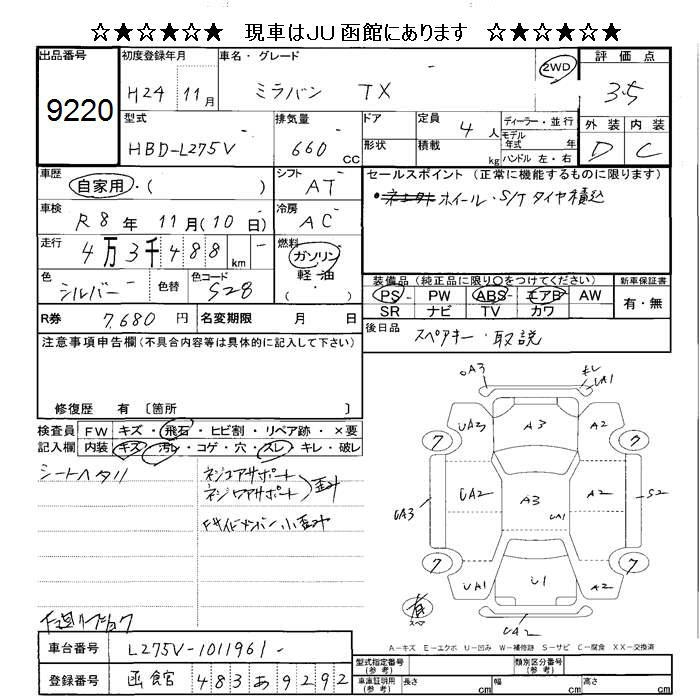 ☆★☆★☆★☆ 現車はJU函館にあります ☆★☆★☆★☆
出品番号 初度登録年月 車名・グレード 評価点
9220 H24 11月 ミラバン TX 2WD 3.5
型式 排気量 ドア 定員 ディーラー・並行 外装 内装
HBD-L275V 660 cc 形状 積載 4人 kg モデル年式 年 ハンドル 左・右 D C
車歴 自家用・( ) シフト AT セールスポイント (正常に機能するものに限ります)
ホイール・S/Tタイヤ積込
車検 R8年 11月(10日) 冷房 AC
走行 4万3千488km 燃料 ガソリン 軽油 ( )
色 シルバー 色替 色コード S28
装備品 (純正品に限り〇をつけてください) 新車保証書
PS PW ABS エアB AW 有・無
SR ナビ TV カワ
R券 7,680円 名変期限 月 日 後日品 スペアキー・取説
注意事項申告欄(不具合内容等は具体的に記入して下さい)
修復歴 有 〔箇所 〕
検査員 FW キズ・飛石・ヒビ割・リペア跡・×要
記入欄 内装 キズ・汚レ・コゲ・穴・スレ・キレ・破レ
シートヘタリ
ネジコアサポート
ネジロアサポート 歪み
UA3 UA1
UA3 A3 A2
7 7
UA3 UA2 A3 A2 S2
UA1
7 7
UA1 U1 A2
有 スペア
UA2
A-キズ E-エクボ U-凹み W-補修跡 S-サビ C-腐食 XX-交換済
車台番号 L275V-1011961
登録番号 函館 483 あ 9292
型式指定番号 (参考) 類別区分番号 (参考)
車庫証明用 (参考) 長さ cm 幅 cm 高さ cm